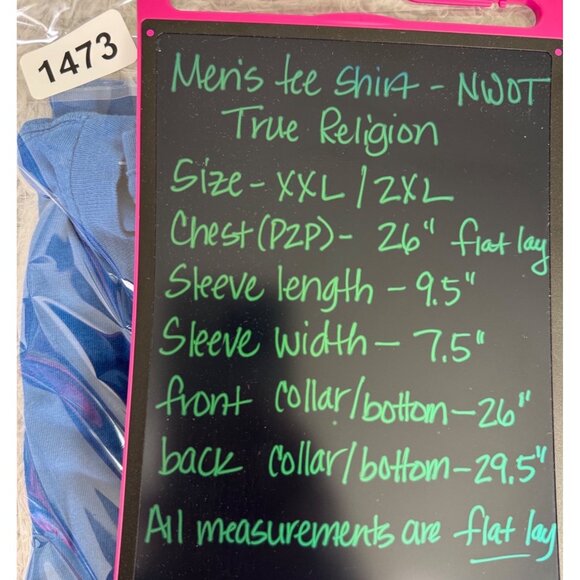 1473
Men's tee shirt - NWOT
True Religion
Size - XXL / 2XL
Chest (P2P) - 26" flat lay
Sleeve length - 9.5"
Sleeve width - 7.5"
front collar/bottom - 26"
back collar/bottom - 29.5"
All measurements are flat lay